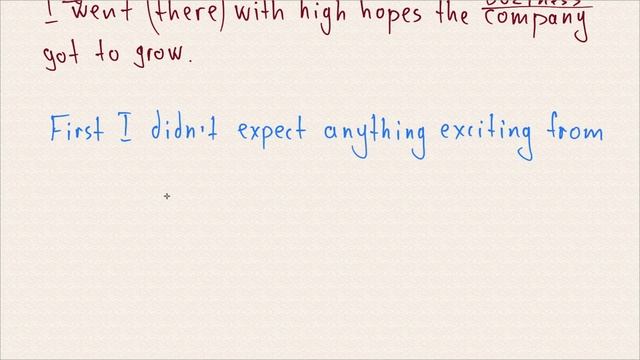 I went (there) with high hopes the company
got to grow.
First I didn't expect anything exciting from